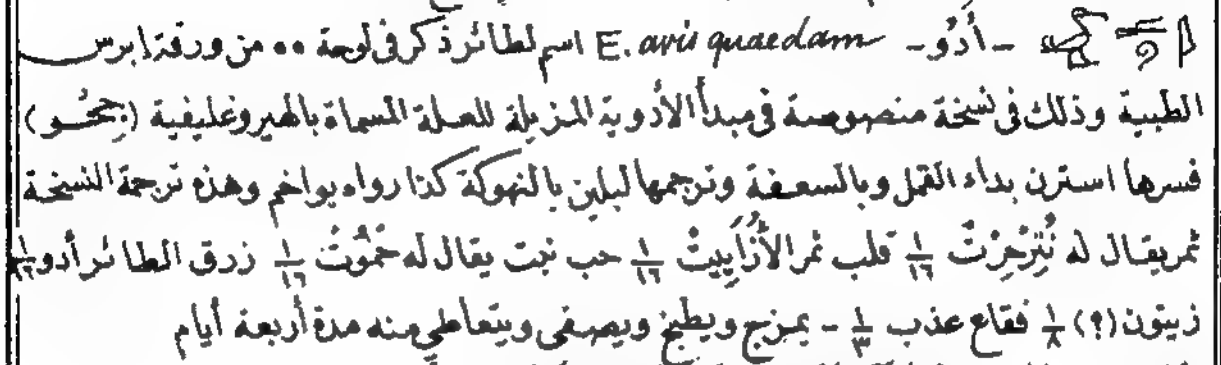 - أَدُو - E. avis quaedam اسم لطائر ذكر فى لوحة ٥٥ من ورقة إبرس
الطبية وذلك فى نسخة منصوصة فى مبدأ الأدوية المزيلة للعلة المسماة بالهيروغليفية (جحُـو)
فسرها استرن بداء القمل وبالسعفة وترجمها لبلين بالنهوكة كذا رواه يواخم وهذه ترجمة النسخة
ثمر يقال له نُتِرْحِرْتْ ١/١٦ قلب ثمر الأزاييت ١/١٦ حب نبت يقال له حَمُّوتْ ١/١٦ زرق الطائر أدو
زيتون (؟) ١/٨ فقاع عذب ١/٣ - يمزج ويطبخ ويصفى ويتعاطى منه مدة أربعة أيام